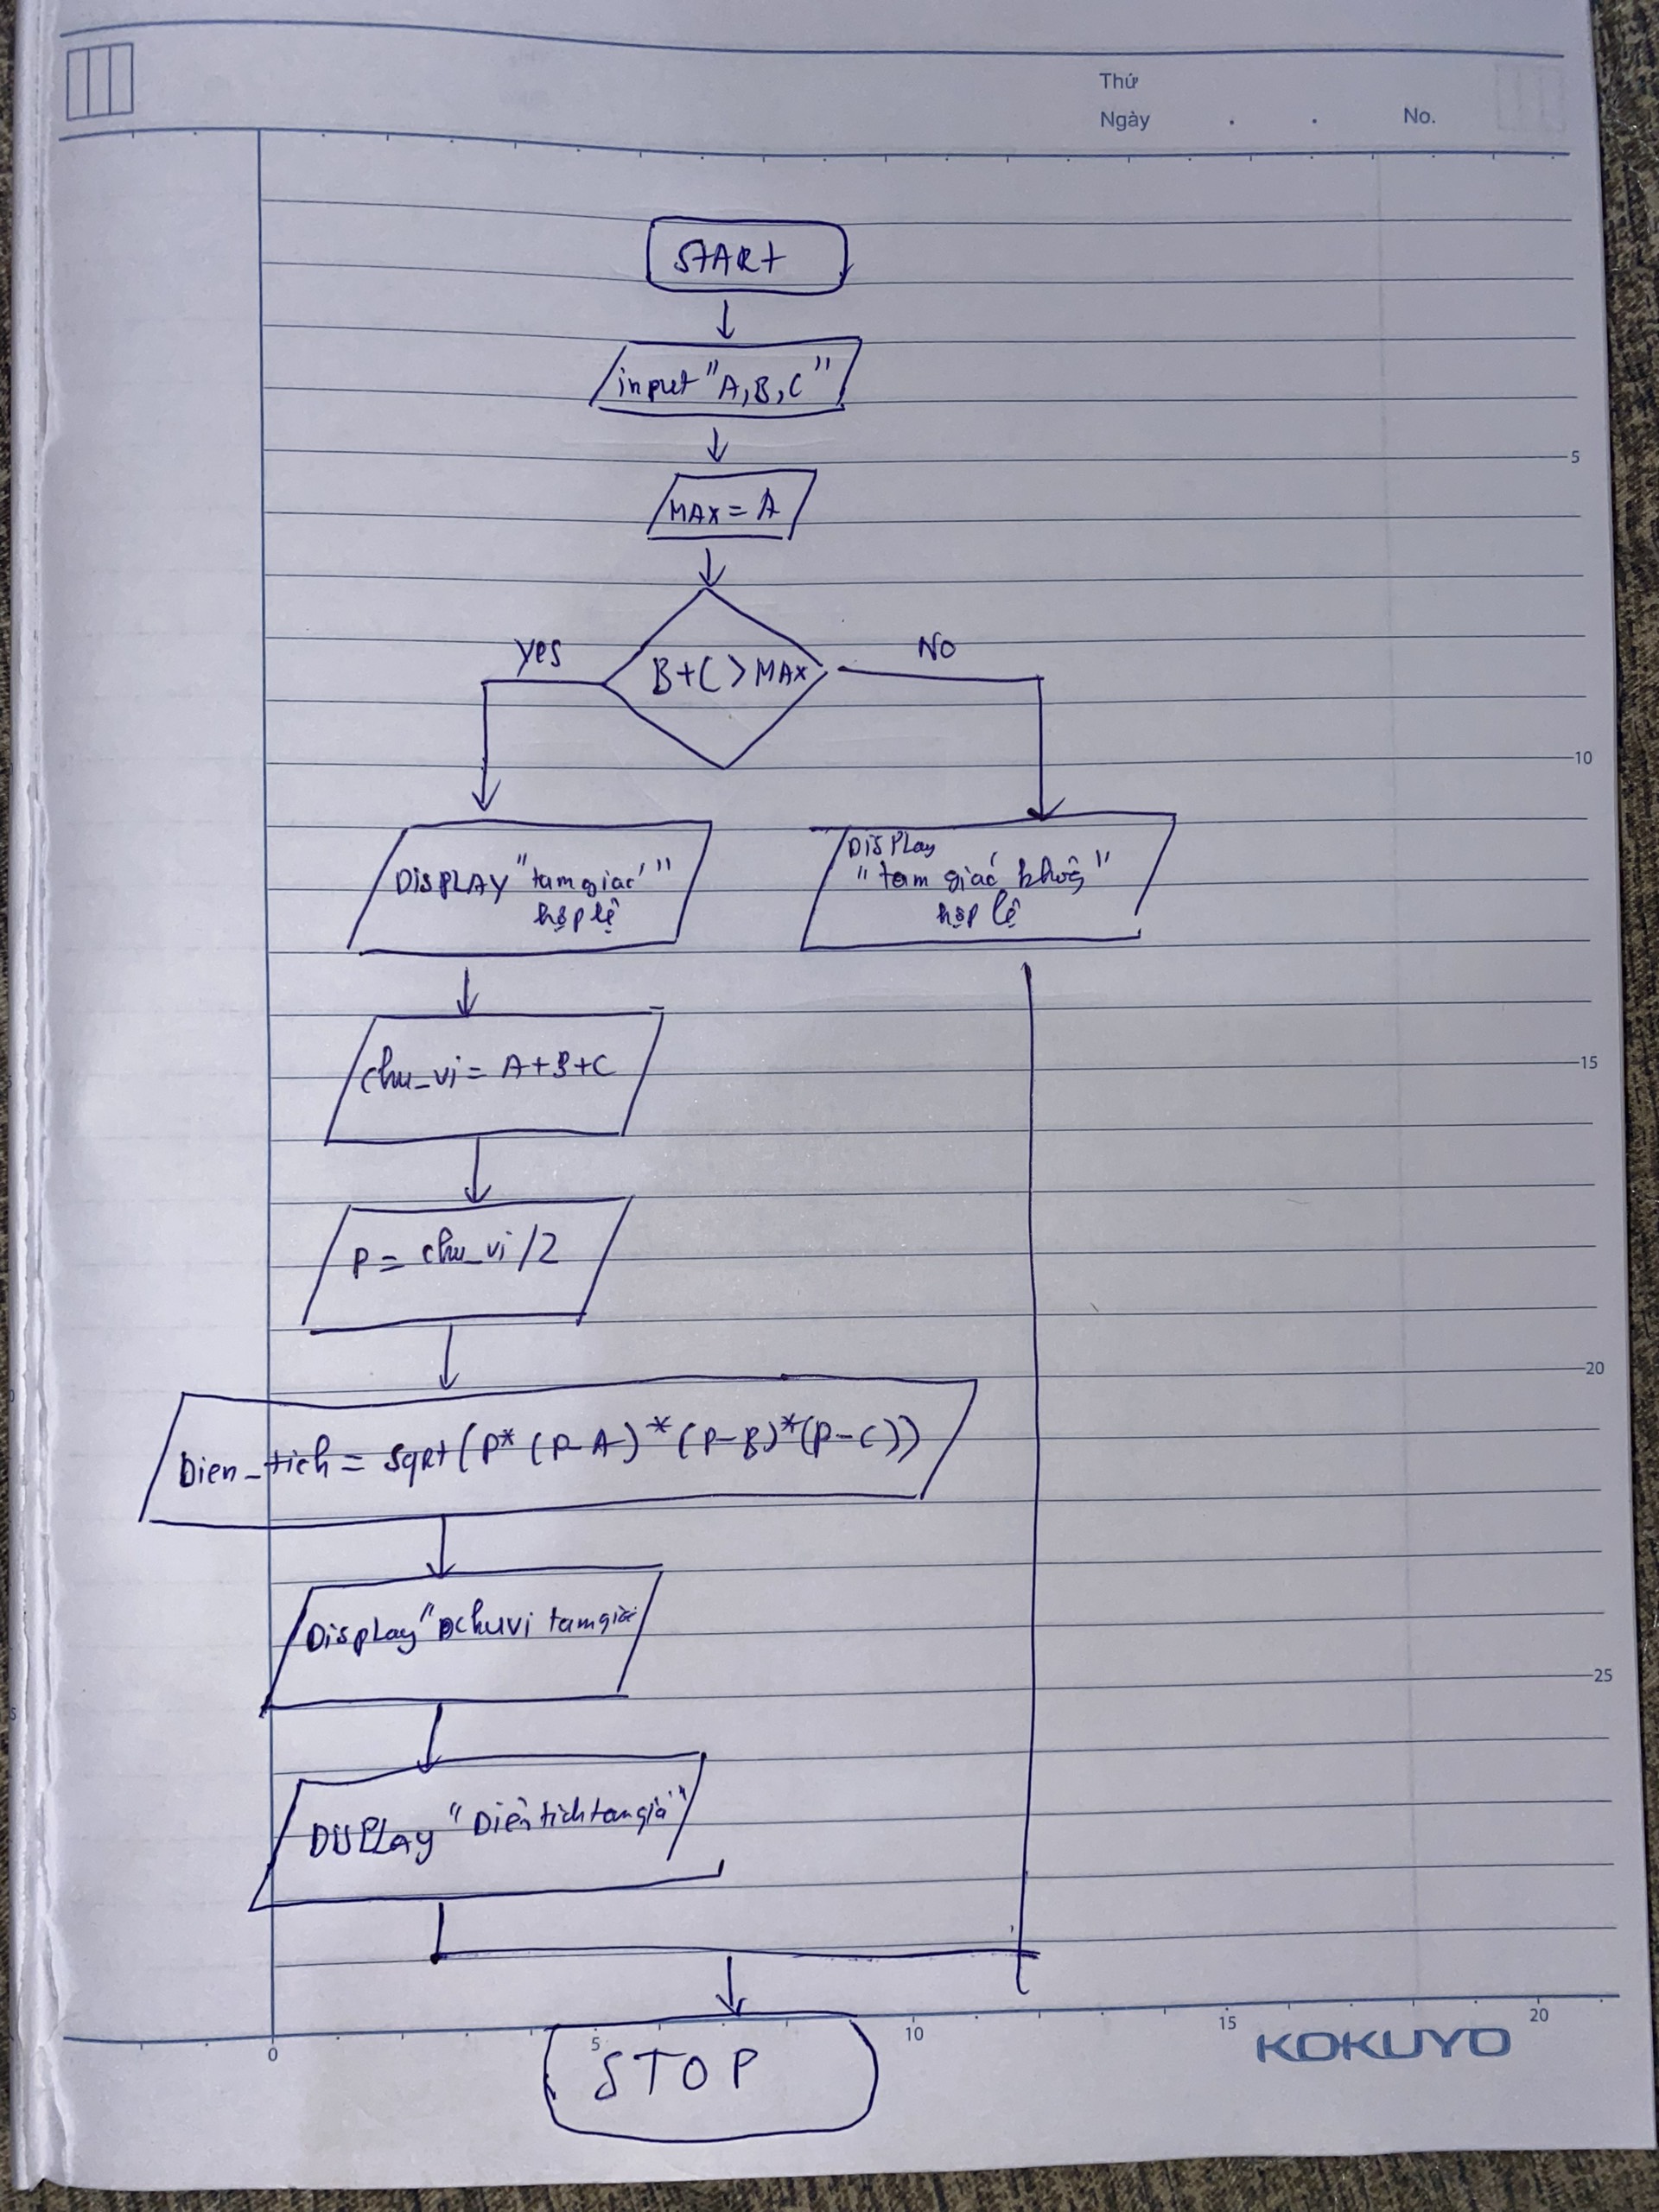 Thứ
Ngày . . No.
START
input "A, B, C"
MAX = A
B+C > MAX
yes
No
DISPLAY "tam giác"
hợp lệ
DISPLAY
"tam giác không"
hợp lệ
chu_vi = A+B+C
P = chu_vi /2
Dien_tich = sqrt(P*(P-A)*(P-B)*(P-C))
Display "chuvi tamgiác
DISPLAY "Diện tich tam giá"
STOP
5
10
15
20
25
0 5 10 15 20
KOKUYO